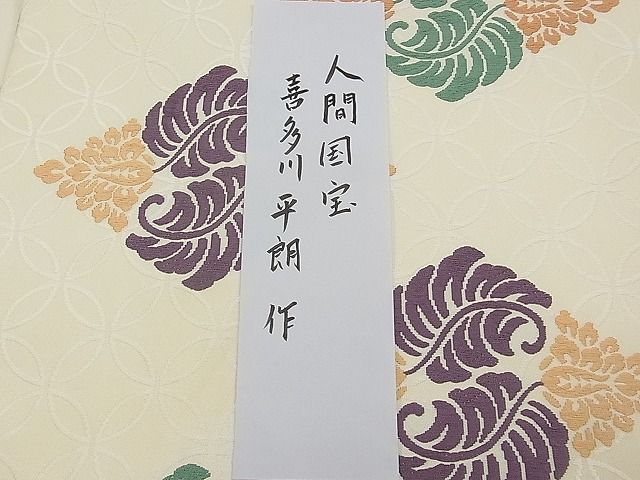 人間国宝
喜多川平朗 作